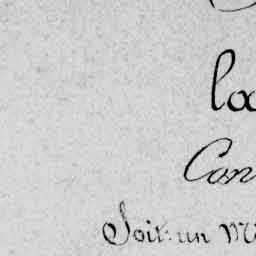 loc
Con
Soit: un M